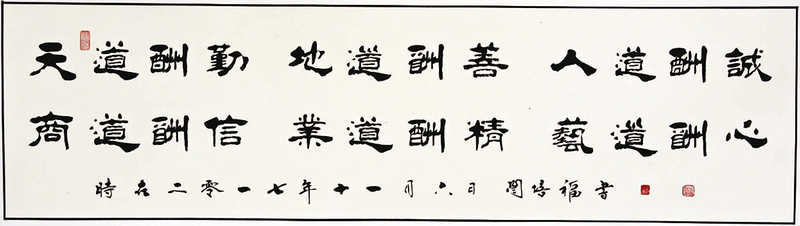 天道酬勤 地道酬善 人道酬誠
商道酬信 業道酬精 藝道酬心
時在二零一七年十一月六日 培福書